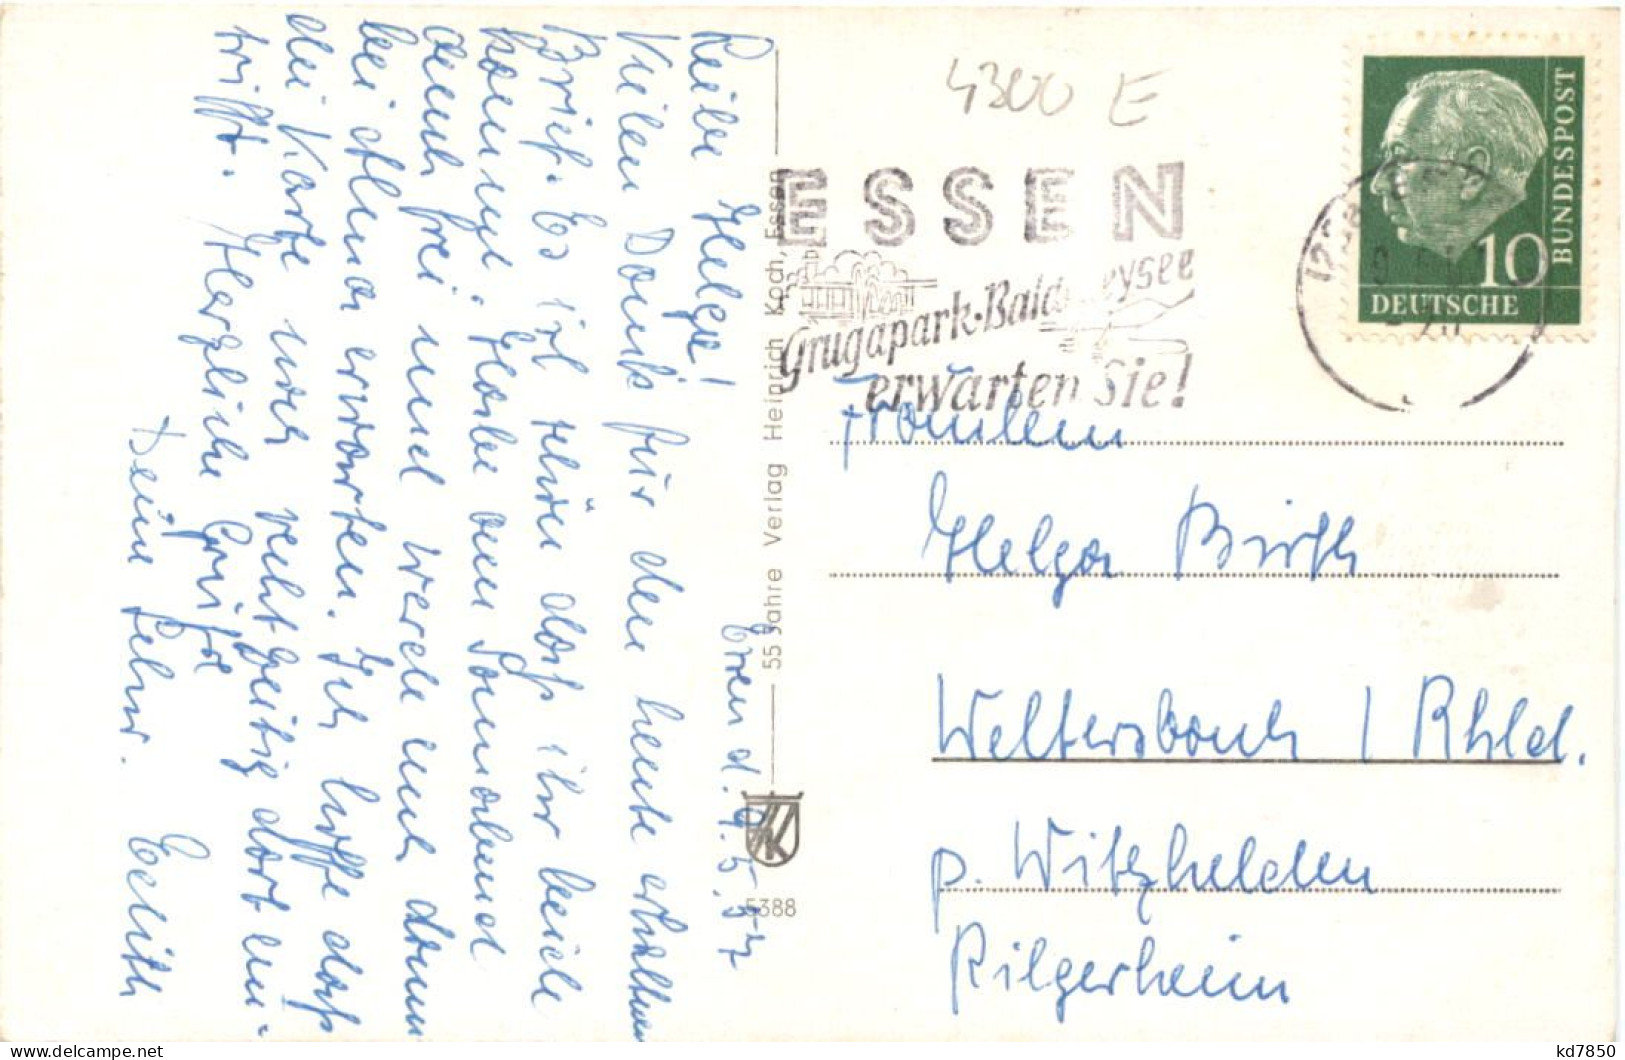 Essen d. 9.5.57
Liebe Helga!
Vielen Dank für den heute erhaltenen
Brief. Es ist schön dass ihr beide
kommt. Habe am Sonnabend
auch frei und werde euch dann
bei Oma erwarten. Ich hoffe dass
die Karte noch rechtzeitig dort ein-
trifft. Herzliche Grüße
Deine Edith
55 Jahre Verlag Heinrich Koch, Essen
K
5388
4300 E
ESSEN
Grugapark-Baldeneysee
erwarten Sie!
DEUTSCHE
BUNDESPOST
10
Fräulein
Helga
Weltersbach / Rhld.
p. Witzhelden
Pilgerheim
kd7850